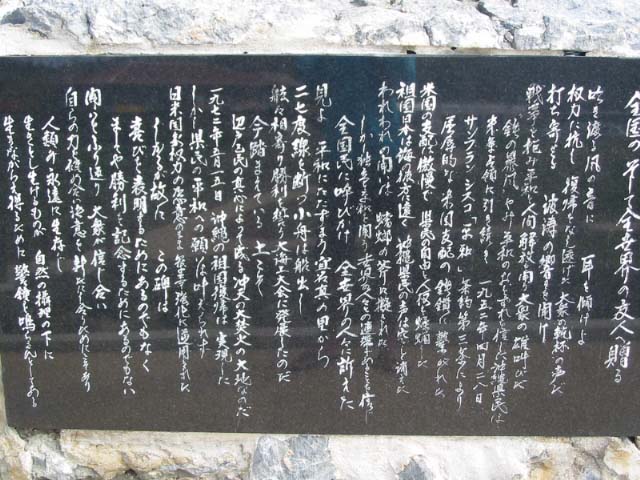 全国の そして全世界の友人へ贈る
吹き渡る風の音に 耳を傾けよ
権力に抗し 復帰をなし遂げた 大衆の乾杯の声だ
打ち寄せる 波濤の響きを聞け
戦争を拒み平和と人間解放を闘う大衆の雄叫びだ
鉄の暴風やみ平和のおとずれを信じた沖縄県民は
米軍占領に引き続き 一九五二年四月二八日
サンフランシスコ「平和」条約第三条により
屈辱的な米国支配の鉄鎖に繋がれた
米国の支配は傲慢で 県民の自由と人権を蹂躙した
祖国日本は海の彼方に遠く 沖縄県民の声は空しく消えた
われわれの闘いは 蟷螂の斧に擬された
しかし独立と平和を闘う世界の人々との連帯あることを信じ
全国民に呼びかけ 全世界の人々に訴えた
見よ 平和にたたずまう宜名真の里から
二七度線を断つ小舟は船出し
舷々相寄り勝利を誓う大海上大会に発展したのだ
今踏まれている 土こそ
辺戸区民の真心によって成る冲天の大焚火の大地なのだ
一九七二年五月一五日 沖縄の祖国復帰は実現した
しかし県民の平和への願いは叶えられず
日米国家権力の恣意のまま軍事強化に逆用された
しかるが故に この碑は
喜びを表明するためにあるのでもなく
ましてや勝利を記念するためにあるのでもない
闘いをふり返り 大衆が信じ合い
自らの力を確め合い決意を新たにし合うためにこそあり
人類が永遠に生存し
生きとし生けるものが 自然の摂理の下に
生きながらえ得るために 警鐘を鳴らさんとしてある